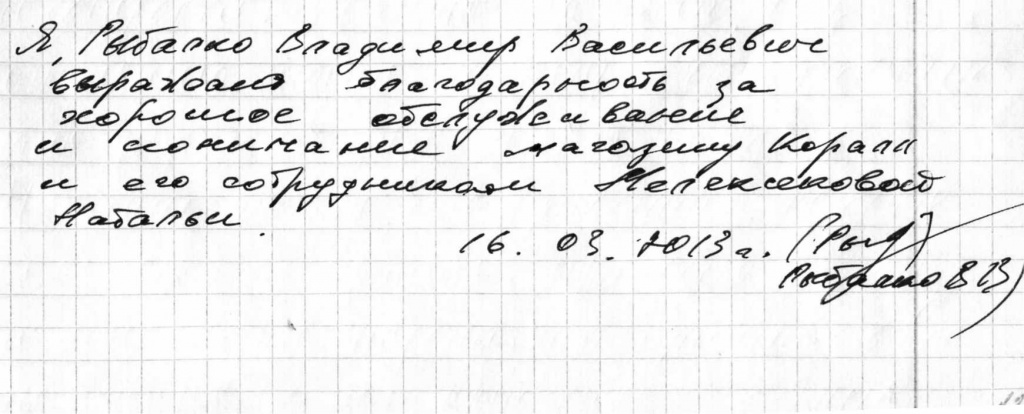 Я, Рыбалко Владимир Васильевич
выражаю благодарность за
хорошое обслуживание
и понимание магазину Коралл
и его сотрудникам
Натальи.
16. 03. 2013 г. (Рыб)
Рыбалко В В)